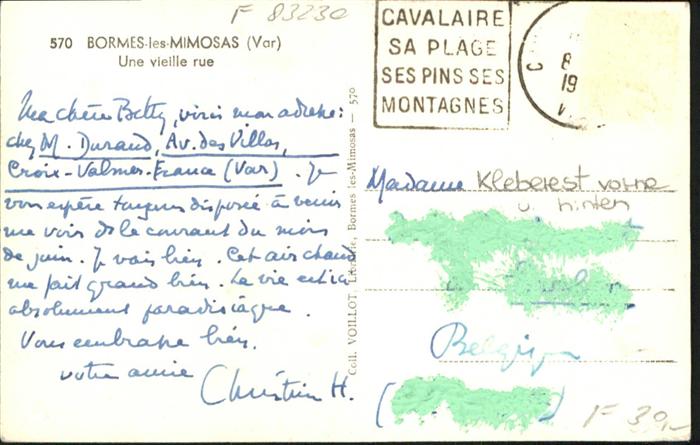 F 83230
570 BORMES-les-MIMOSAS (Var)
Une vieille rue
Ma chère Betty, voici mon adresse:
chez M. Durand, Av. des Villas,
Croix-Valmer-France (Var). Je
vous espère toujours disposée à venir
me voir ds le courant du mois
de juin. Je vais bien. Cet air chaud
me fait grand bien. La vie est ici
absolument paradisiaque.
Vous embrasse bien.
votre amie
Christin H.
Coll. VOILLOT, Librairie, Bormes les-Mimosas — 570
CAVALAIRE
SA PLAGE
SES PINS SES
MONTAGNES
C
8
19
Madame Kleberest vorne
u. hinten
Belgique
(
F 39,-